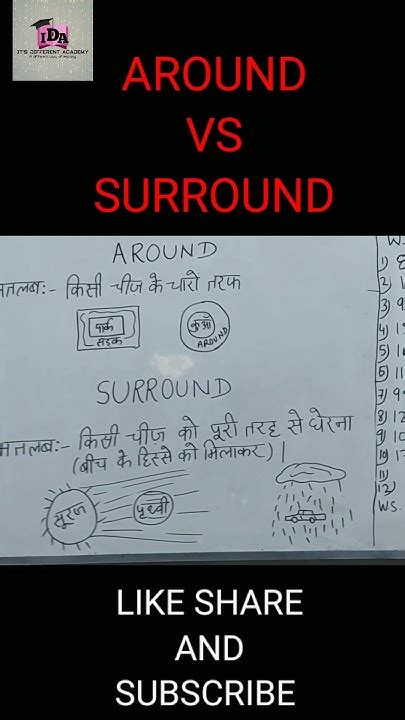 IDA
IT'S DIFFERENT ACADEMY
AROUND
VS
SURROUND
AROUND
मतलब:- किसी चीज़ के चारों तरफ
पार्क
सड़क
कुआँ
AROUND
SURROUND
मतलब:- किसी चीज़ को पूरी तरह से घेरना
(बीच के हिस्से को मिलाकर) |
सूरज
पृथ्वी
W.S.
LIKE SHARE
AND
SUBSCRIBE